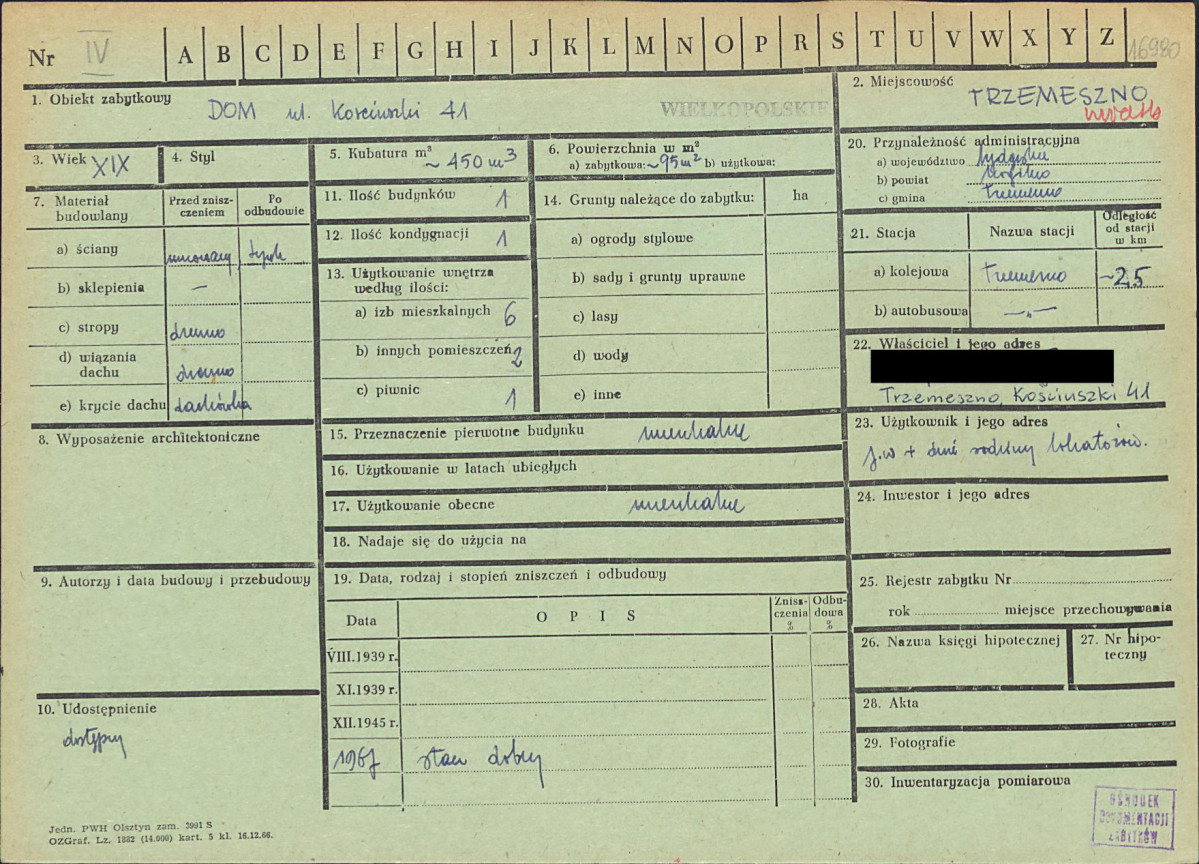 Nr IV A B C D E F G H I J K L M N O P R S T U V W X Y Z 16980
1. Obiekt zabytkowy
DOM ul. Kościuszki 41
WIELKOPOLSKIE
2. Miejscowość
TRZEMESZNO
3. Wiek XIX
4. Styl
5. Kubatura m³
~ 450 m³
6. Powierzchnia w m²
a) zabytkowa: ~95m² b) użytkowa:
20. Przynależność administracyjna
a) województwo bydgoskie
b) powiat Mogilno
c) gmina Trzemeszno
7. Materiał budowlany
Przed znisz-
czeniem
Po
odbudowie
a) ściany murowany, tynk
b) sklepienia —
c) stropy drewno
d) wiązania
dachu drewno
e) krycie dachu dachówka
8. Wyposażenie architektoniczne
9. Autorzy i data budowy i przebudowy
10. Udostępnienie
dostępny
11. Ilość budynków 1
12. Ilość kondygnacji 1
13. Użytkowanie wnętrza
według ilości:
a) izb mieszkalnych 6
b) innych pomieszczeń 2
c) piwnic 1
14. Grunty należące do zabytku:
ha
a) ogrody stylowe
b) sady i grunty uprawne
c) lasy
d) wody
e) inne
15. Przeznaczenie pierwotne budynku mieszkalne
16. Użytkowanie w latach ubiegłych
17. Użytkowanie obecne mieszkalne
18. Nadaje się do użycia na
19. Data, rodzaj i stopień zniszczeń i odbudowy
Data
O P I S
Znisz-
czenia
%
Odbu-
dowa
%
VIII.1939 r.
XI.1939 r.
XII.1945 r.
1967 stan dobry
21. Stacja
Nazwa stacji
Odległość
od stacji
w km
a) kolejowa Trzemeszno ~2,5
b) autobusowa —„—
22. Właściciel i jego adres
Trzemeszno, Kościuszki 41
23. Użytkownik i jego adres
j.w + dwie rodziny lokatorów.
24. Inwestor i jego adres
25. Rejestr zabytku Nr
rok miejsce przechowywania
26. Nazwa księgi hipotecznej
27. Nr hipo-
teczny
28. Akta
29. Fotografie
30. Inwentaryzacja pomiarowa
OŚRODEK
DOKUMENTACJI
ZABYTKÓW
Jedn. PWH Olsztyn zam. 3991 S
OZGraf. Lz. 1882 (14.000) kart. 5 kl. 16.12.66.